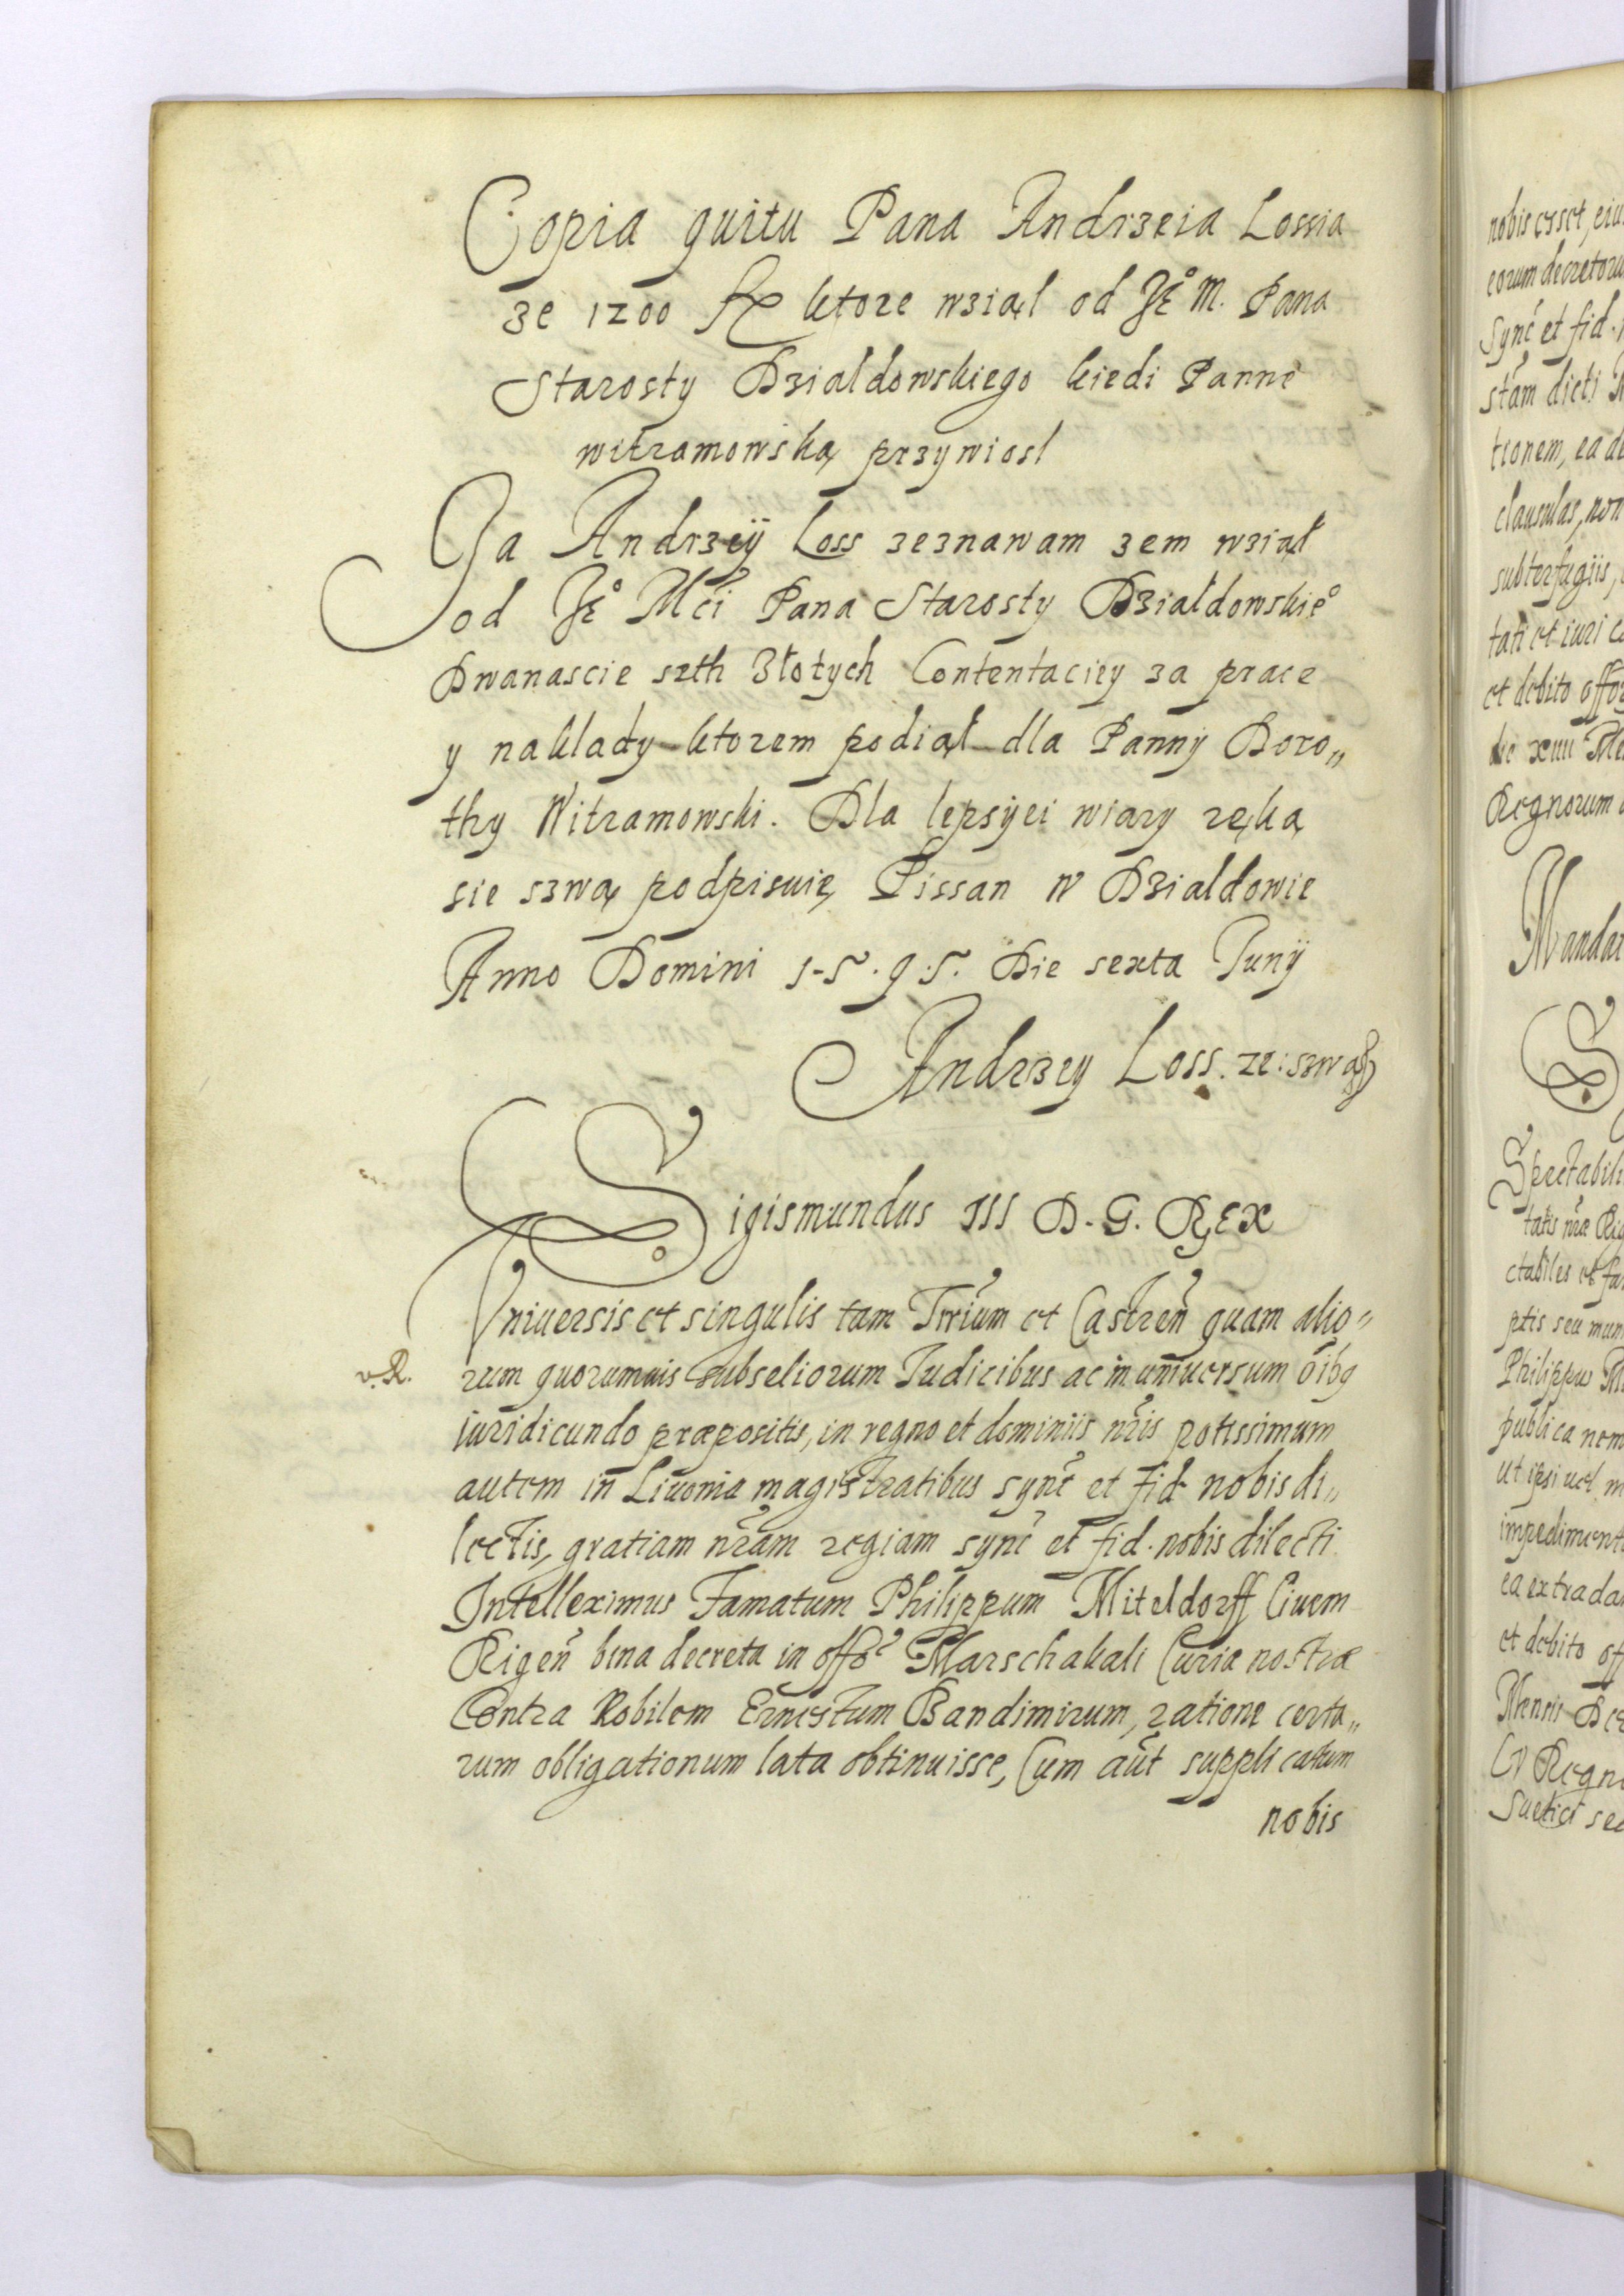 Copia quitu Pana Andrzeia Lossia
ze 1200 fl ktore wziął od Je° M. Pana
Starosty Dzialdowskiego kiedi Panne
witramowską przywiosl
Ja Andrzeÿ Loss zeznawam zem wziął
od Je° Mci Pana Starosty Dzialdowskie°
Dwanascie seth Złotych Contentaciey za prace
y naklady ktorem podiął dla Panny Doro„
thy Witramowski. Dla lepsÿei wiary ręką
sie szwą podpisuię Pissan w Dzialdowie
Anno Domini 1-5.9.5. Die sexta Junÿ
Andrzey Loss. re: szwą
Sigismundus III D. G. Rex
Vniuersis et singulis tam Trrium et Castren quam alio„
rum quorumuis subseliorum Judicibus ac in uniuersum oibq
v. R.
iuridicundo præpositis, in regno et dominiis nris potissimum
autem in Liuonia magistratibus sync et fid. nobis di„
lectis, gratiam nram regiam sync et fid. nobis dilecti
Intelleximus Famatum Philippum Miteldorff Ciuem
Rigen bina decreta in offo Marschakali Curia nostræ
Contra Nobilem Ernestum Bandimirum, ratione certa„
rum obligationum lata obtinuisse, Cum aut supplicatum
nobis
nobis esset, eiu
eorum decretoru
sync et fid.
stam dicti
tionem, ea de
clausulas, non
subterfugiis,
tati et iuri
et debito offo
die xiiii Me
Regnorum
Mandat
S
Spectabili
tatis nræ Rig
ctabiles et fa
ptis seu mun
Philippu Mi
publica nom
ut ipsi uel
impediment
ea extrada
et debito off
Mensis Dec
Regn
Suetici sec